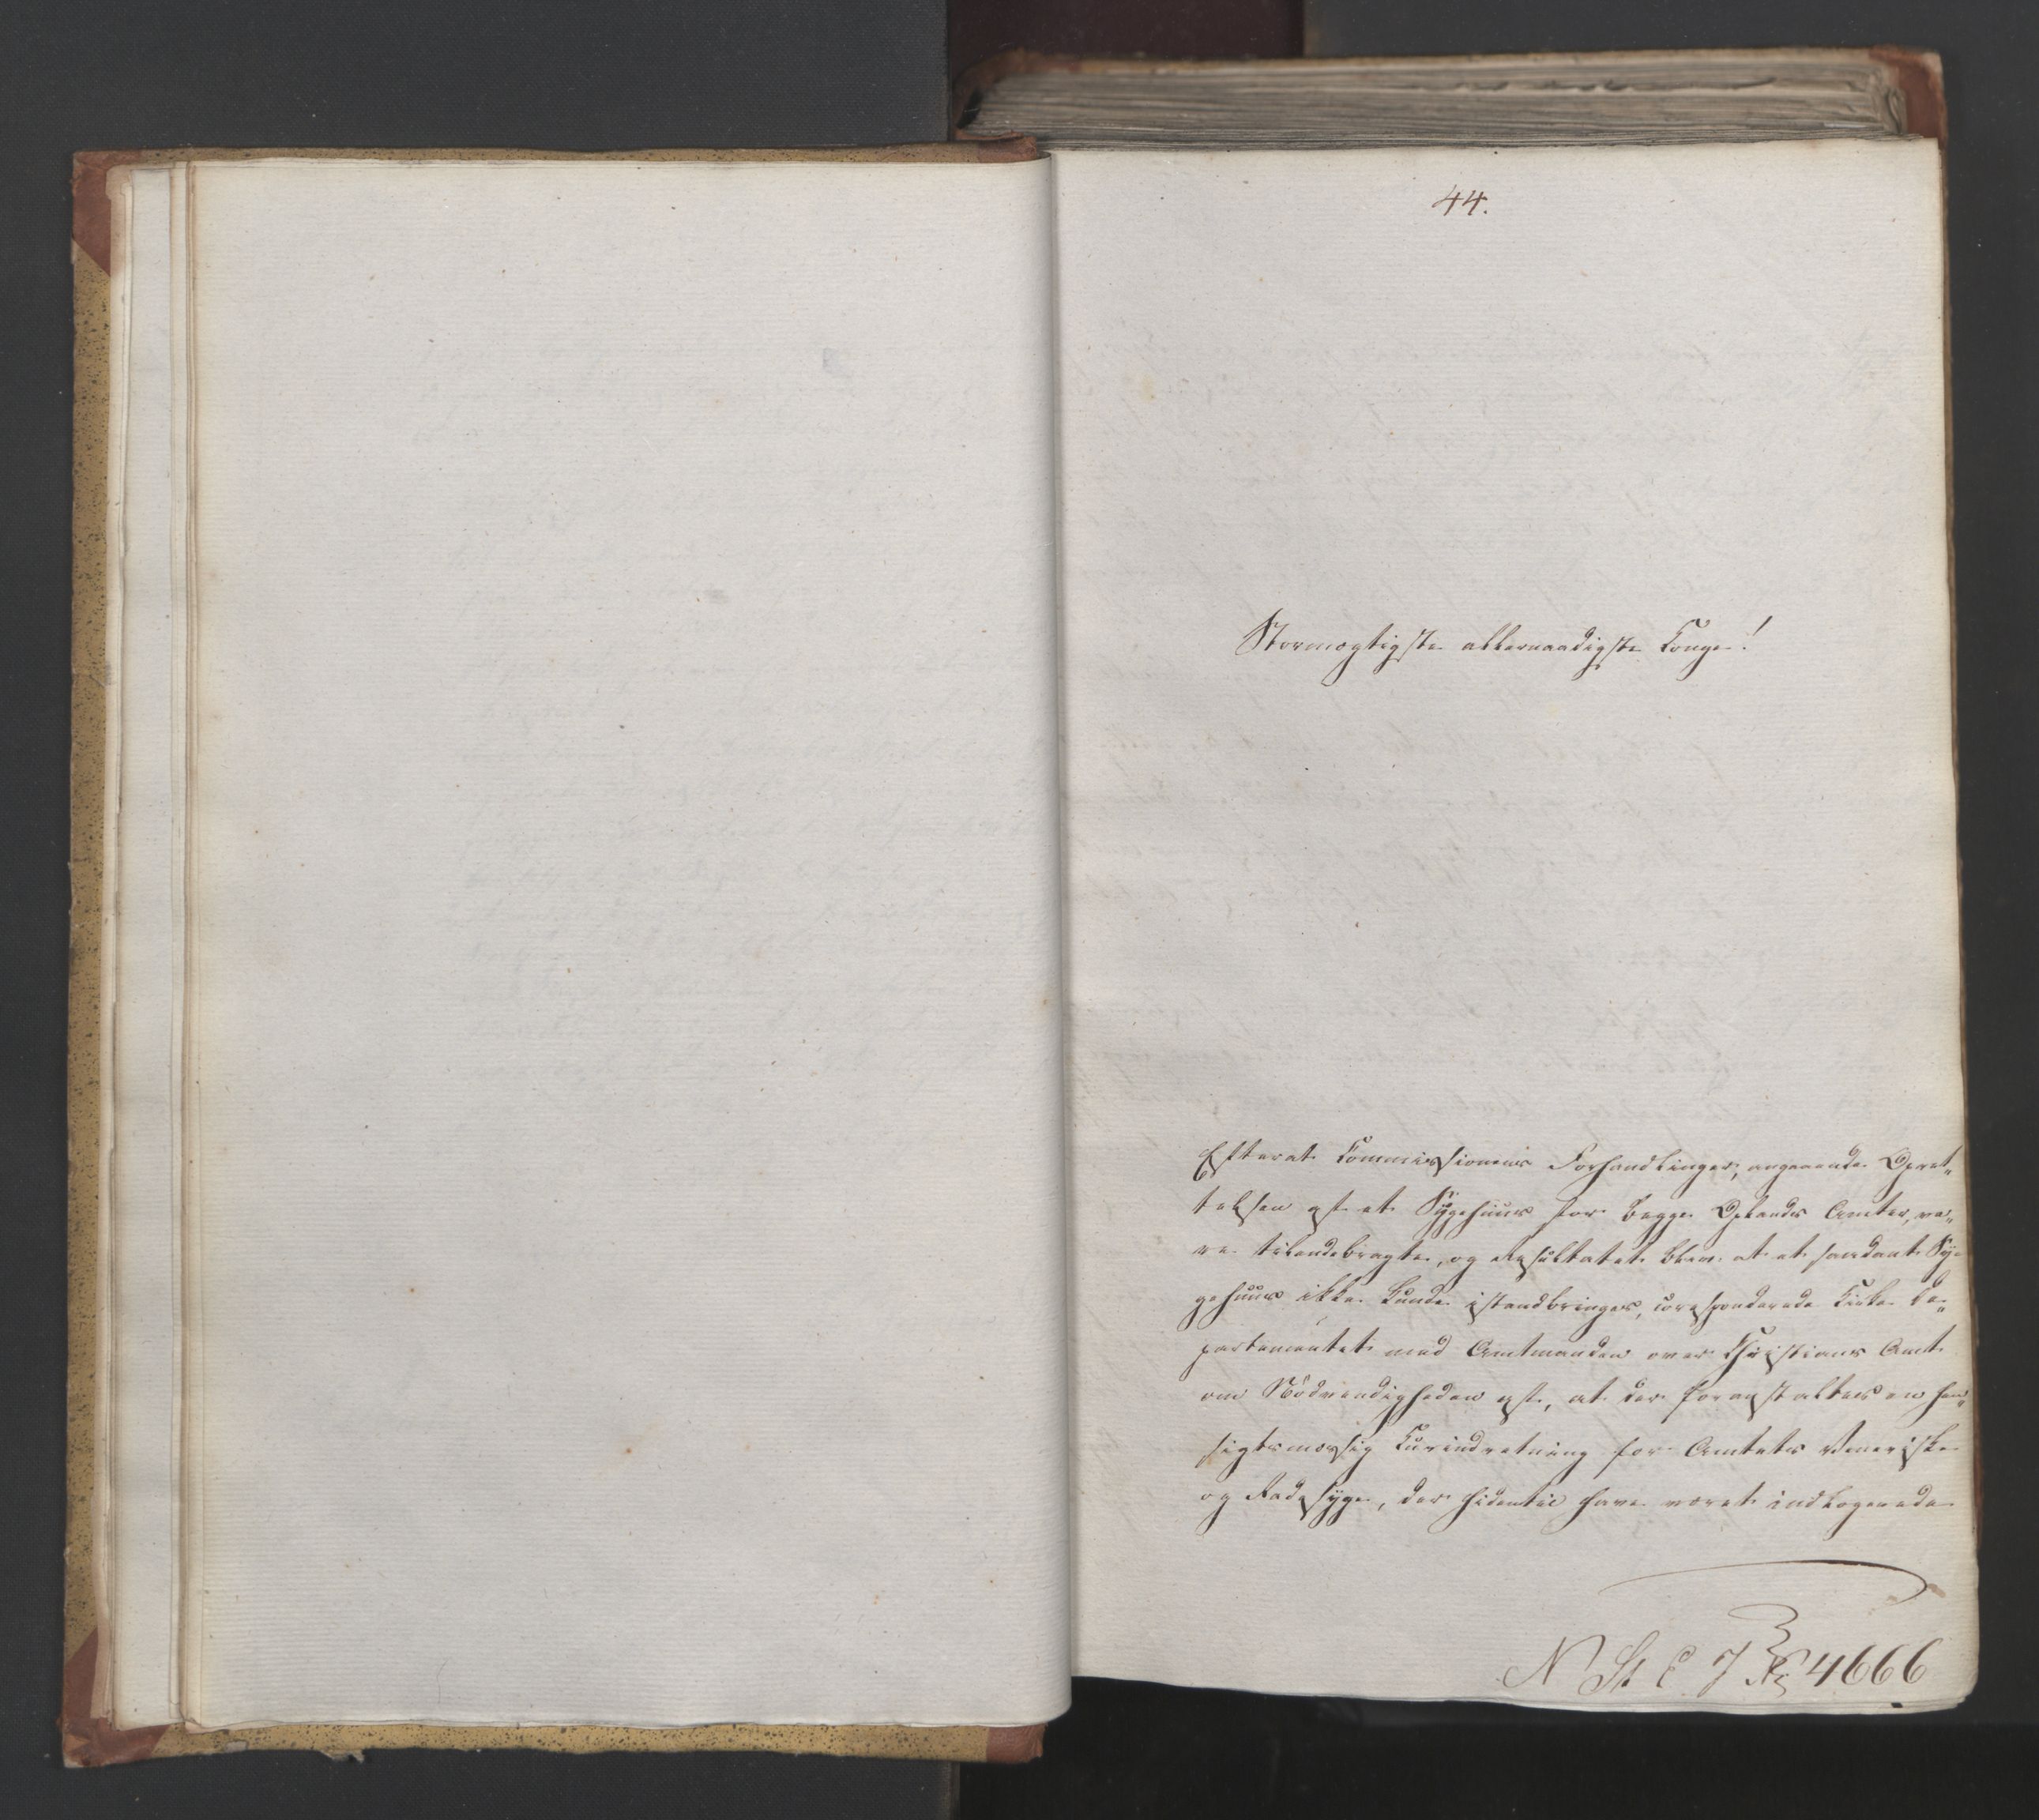 44.
Stormægtigste allernaadigste Konge!
Efterat Commissionens Forhandlinger, angaaende Opret„
telsen af et Sÿgehuus for begge Oplands Amter, va„
re tilendebragte, og Resultatet blev at et saadant Sÿ„
gehuus ikke kunde istandbringes, corresponderede Kirke De„
partementet med Amtmanden over Christians Amt
om Nödvendigheden af, at der foranstaltes en hen„
sigtsmæssig Kurindretning for Amtets Veneriske
og Radesÿge, der hidentil have været indlogerede
N St E J No 4666